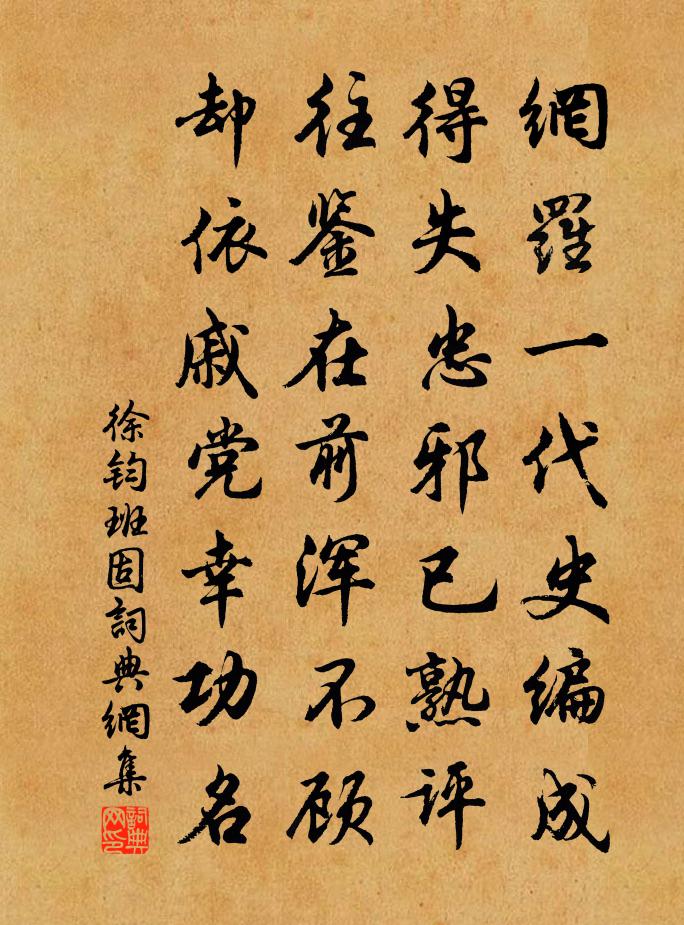 網羅一代史编成
得失忠邪已熟评
往鉴在前浑不顾
却依戚党幸功名
徐钧班固詞典網集
詞典
网印